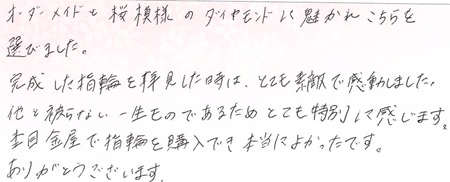 オーダーメイドと桜模様のダイヤモンドに魅かれこちらを
選びました。
完成した指輪を拝見した時は、とても素敵で感動しました。
他と被らない一生ものであるためとても特別に感じます。
杢目金屋で指輪を購入でき本当によかったです。
ありがとうございます。